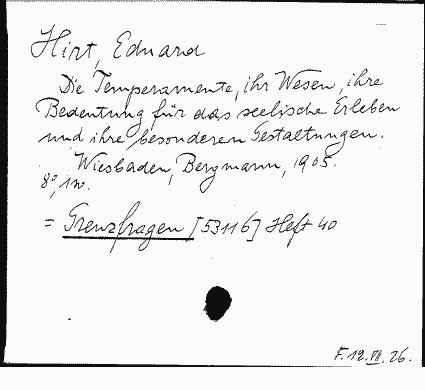 Hirt, Eduard
Die Temperamente, ihr Wesen, ihre
Bedeutung für das seelische Erleben
und ihre besonderen Gestaltungen.
Wiesbaden, Bergmann, 1905.
8°, 1 m.
= Grenzfragen [53116] Heft 40
F. 12. VII. 26.